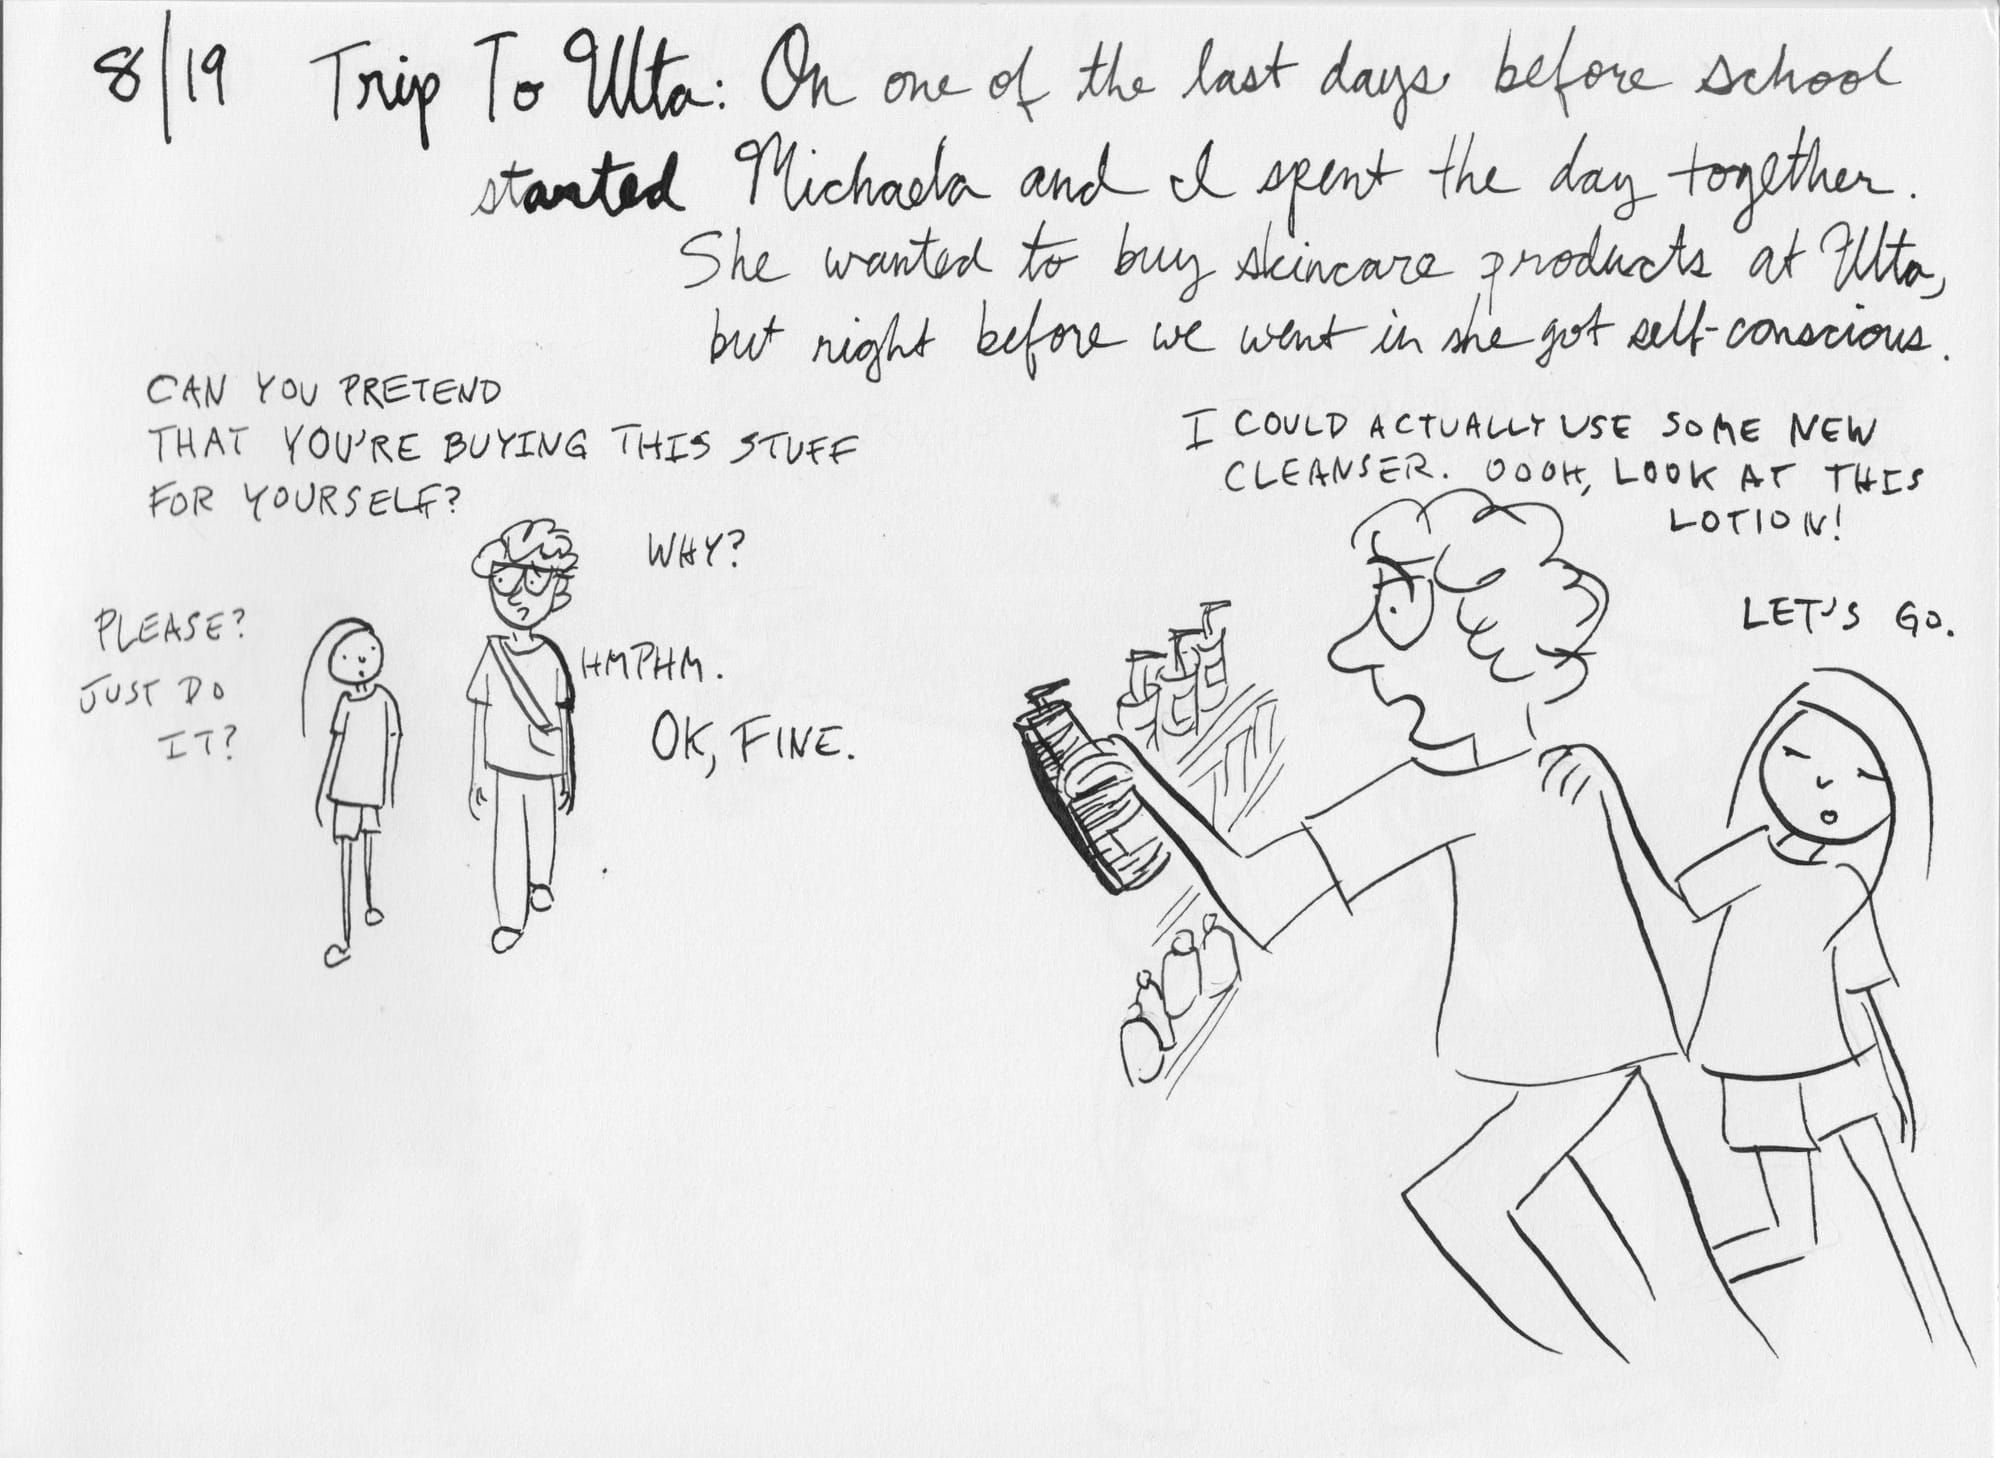 8/19 Trip To Ulta: On one of the last days before school
started Michaela and I spent the day together.
She wanted to buy skincare products at Ulta,
but right before we went in she got self-conscious.
CAN YOU PRETEND
THAT YOU'RE BUYING THIS STUFF
FOR YOURSELF?
WHY?
PLEASE?
JUST DO
IT?
HMPHM.
OK, FINE.
I COULD ACTUALLY USE SOME NEW
CLEANSER. OOOH, LOOK AT THIS
LOTION!
LET'S GO.